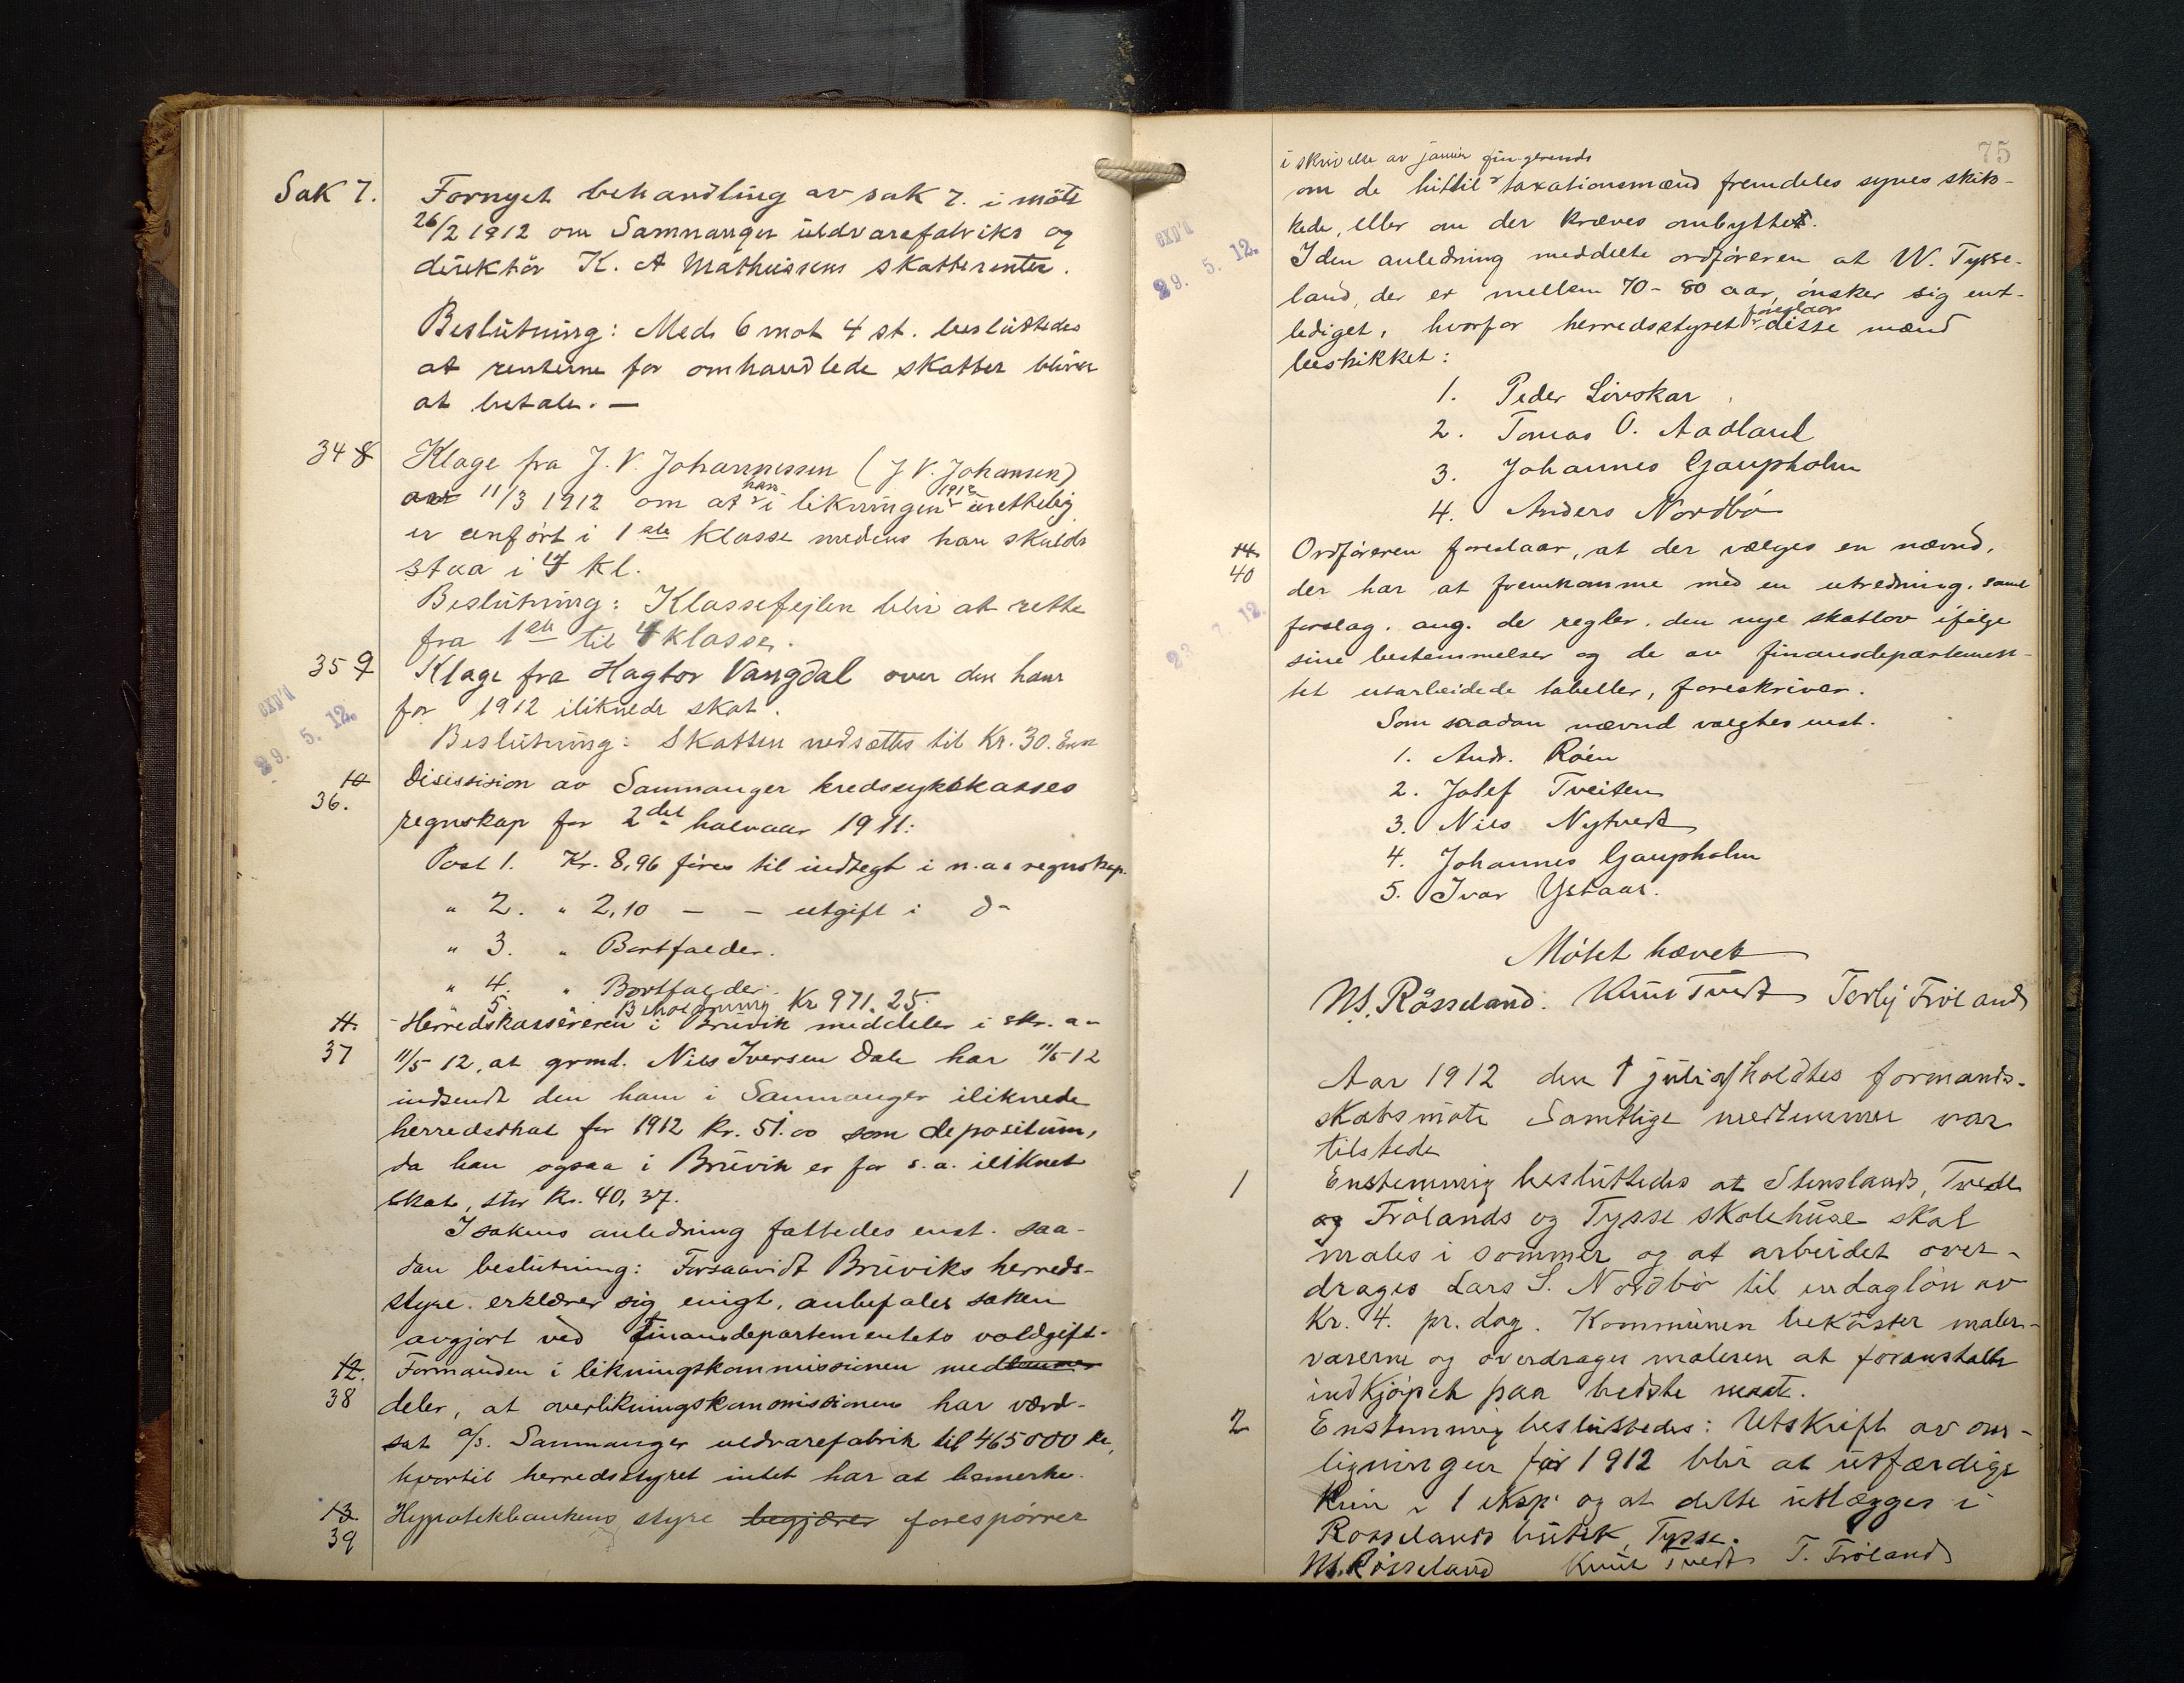 Sak 7. Fornyet behandling av sak 7. i møte
26/2 1912 om Samnanger uldvarefabriks og
direktør K. A Mathiesens skatterenter.
Beslutning: Med 6 mot 4 st. besluttedes
at renterne for omhandlede skatter bliver
at betale. —
34 8 Klage fra J. V. Johannessen (J V. Johansen)
av 11/3 1912 om at han i likningen 1912 urettelig
er anført i 1ste klasse medens han skulde
staa i 4 kl.
Beslutning: Klassefejlen blir at rette
fra 1ste til 4 klasse.
35 9 Klage fra Hagtor Vangdal over den ham
exp'd
29. 5. 12.
for 1912 iliknede skat.
Beslutning: Skatten nedsættes til Kr. 30. Enst
10 Desission av Samnanger kredssykekasses
36. regnskap for 2det halvaar 1911:
Post 1. Kr. 8,96 føres til indtegt i n. aa regnskap.
" 2. " 2,10 — — utgift i do
" 3. " Bortfalder.
" 4. " Bortfalder.
" 5. Beholdning Kr 971.25.
11. Herredskassereren i Bruvik meddeler i skr. av
37 11/5 12, at grmd. Nils Iversen Dale har 11/5 12
indsendt den ham i Samnanger iliknede
herredskat for 1912 kr. 51.00 som depositum,
da han ogsaa i Bruvik er for s. a. iliknet
skat, stor kr. 40,37.
I sakens anledning fattedes enst. saa-
dan beslutning: Forsaavidt Bruviks herreds-
styre erklærer sig enigt, anbefales saken
avgjort ved Finansdepartementets voldgift.
12. Formanden i likningskommissionen medlemmer
38 deler, at overlikningskommissionen har værd-
sat a/s. Samnanger uldvarefabrik til 465000 kr,
hvortil herredsstyret intet har at bemerke.
13. Hypotekbankens styre begjærer forespørrer
39
75
i skrivelse av januar
om de hittil taxationsmænd fremdeles synes skik-
kede, eller om der kræves ombyttet.
exp'd
29. 5. 12.
I den anledning meddelte ordføreren at W. Tysse-
land, der er mellem 70 - 80 aar, ønsker sig ent-
lediget, hvorfor herredsstyret foreslaar disse mænd
beskikket:
1. Peder Livskar
2. Tomas O. Aadland
3. Johannes Gaupholm
4. Anders Nordbø
14. Ordføreren foreslaar, at der vælges en nævnd,
40 der har at fremkomme med en utredning, samt
forslag. ang. de regler, den nye skatlov ifølge
sine bestemmelser og de av finansdepartemen-
tet utarbeidede tabeller, foreskriver.
Som saadan nævnd valgtes enst.
1. Andr. Røen
2. Josef Tveiten
3. Nils Nytvedt
4. Johannes Gaupholm
5. Ivar Ystaas.
Møtet hævet
Ns. Røsseland. Knut Tvedt Terbj Frøland
Aar 1912 den 1 juli afholdtes formands-
skabsmøte Samtlige medlemmer var
tilstede
1 Enstemmig besluttedes at Stenslands, Tvedt
og Frølands og Tysse skolehuse skal
males i sommer og at arbeidet over-
drages Lars S. Nordbø til en dagløn av
Kr. 4. pr. dag. Kommunen bekoster maler-
varerne og overdrages maleren at foranstalte
indkjøpet paa bedste maate.
2 Enstemmig besluttedes: Utskrift av om-
ligningen for 1912 blir at utfærdige
kun i 1 eksp. og at dette utlægges i
Rosselands butik, Tysse.
Ns. Røsseland Knut Tvedt T. Frøland